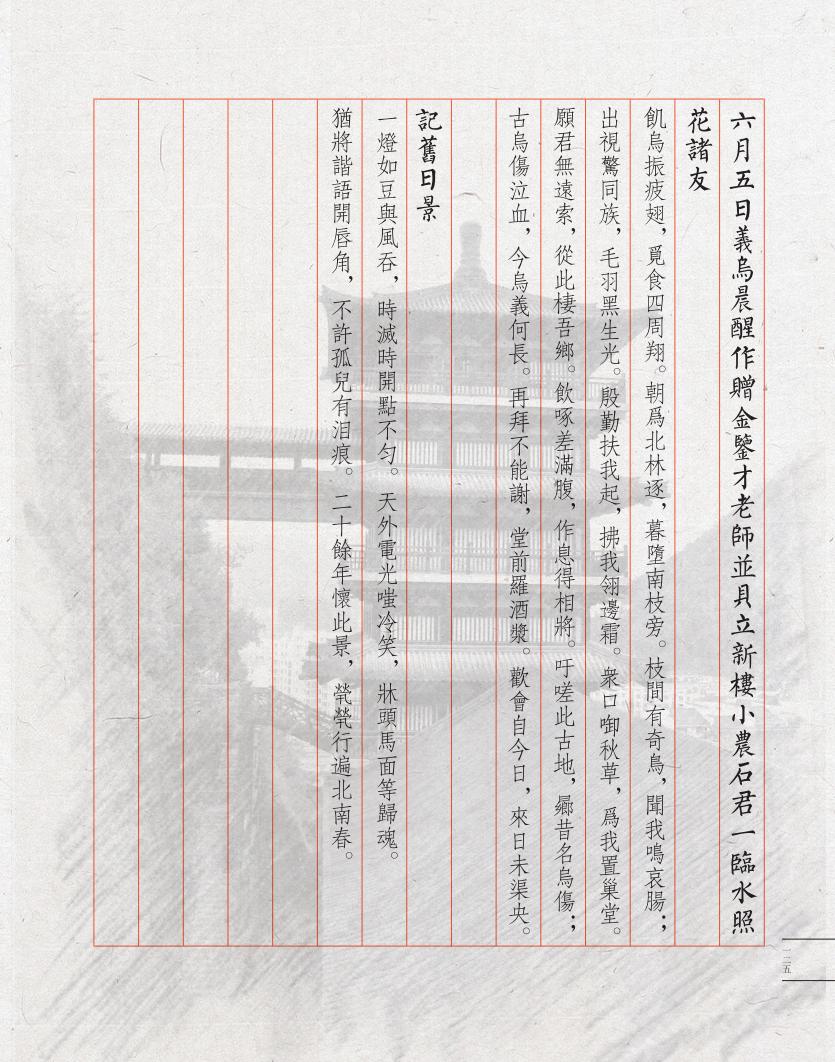 六月五日義烏晨醒作贈金鑒才老師並貝立新樓小農石君一臨水照
花諸友
飢烏振疲翅，覓食四周翔。朝爲北林逐，暮墮南枝旁。枝間有奇鳥，聞我鳴哀腸；
出視驚同族，毛羽黑生光。殷勤扶我起，拂我翎邊霜。衆口啣秋草，爲我置巢堂。
願君無遠索，從此棲吾鄉。飲啄差滿腹，作息得相將。吁嗟此古地，曏昔名烏傷；
古烏傷泣血，今烏義何長。再拜不能謝，堂前羅酒漿。歡會自今日，來日未渠央。
記舊日景
一燈如豆與風吞，時滅時開點不勻。天外電光嗤冷笑，牀頭馬面等歸魂。
猶將諧語開唇角，不許孤兒有泪痕。二十餘年懷此景，煢煢行遍北南春。
一二五